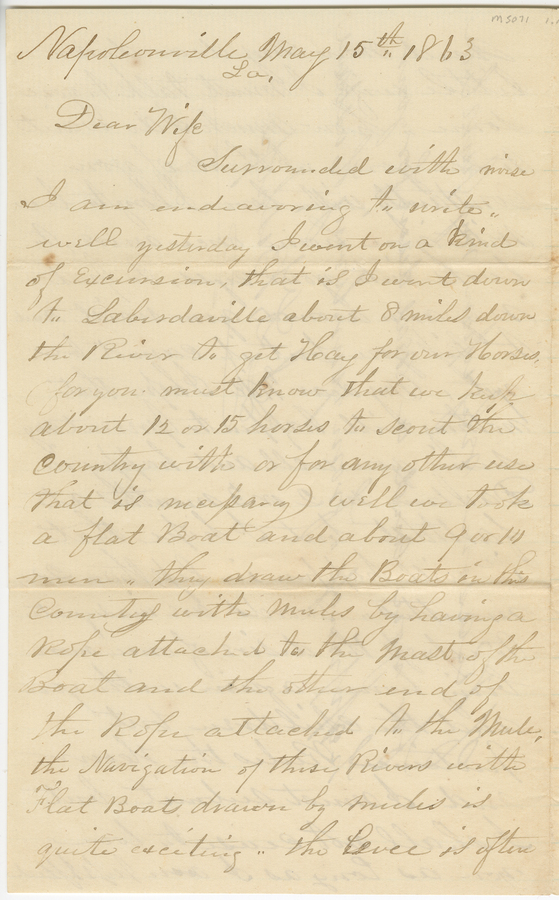 MS071
Napoleonville May 15th 1863
La.
Dear Wife
Surrounded with noise
I am endeavoring to write"
well yesterday I went on a kind
of Excursion, that is I went down
to Labirdaville about 8 miles down
the River to get Hay for our Horses.
(for you must know that we keep
about 12 or 15 horses to scout the
Country with or for any other use
that is necessary) well we took
a flat Boat and about 9 or 10
men " they draw the Boats in this
Country with mules by having a
Rope attached to the Mast of the
Boat and the other end of
the Rope attached to the Mule,
the Navigation of these Rivers with
Flat Boat drawn by mules is
quite exciting " the Levee is often